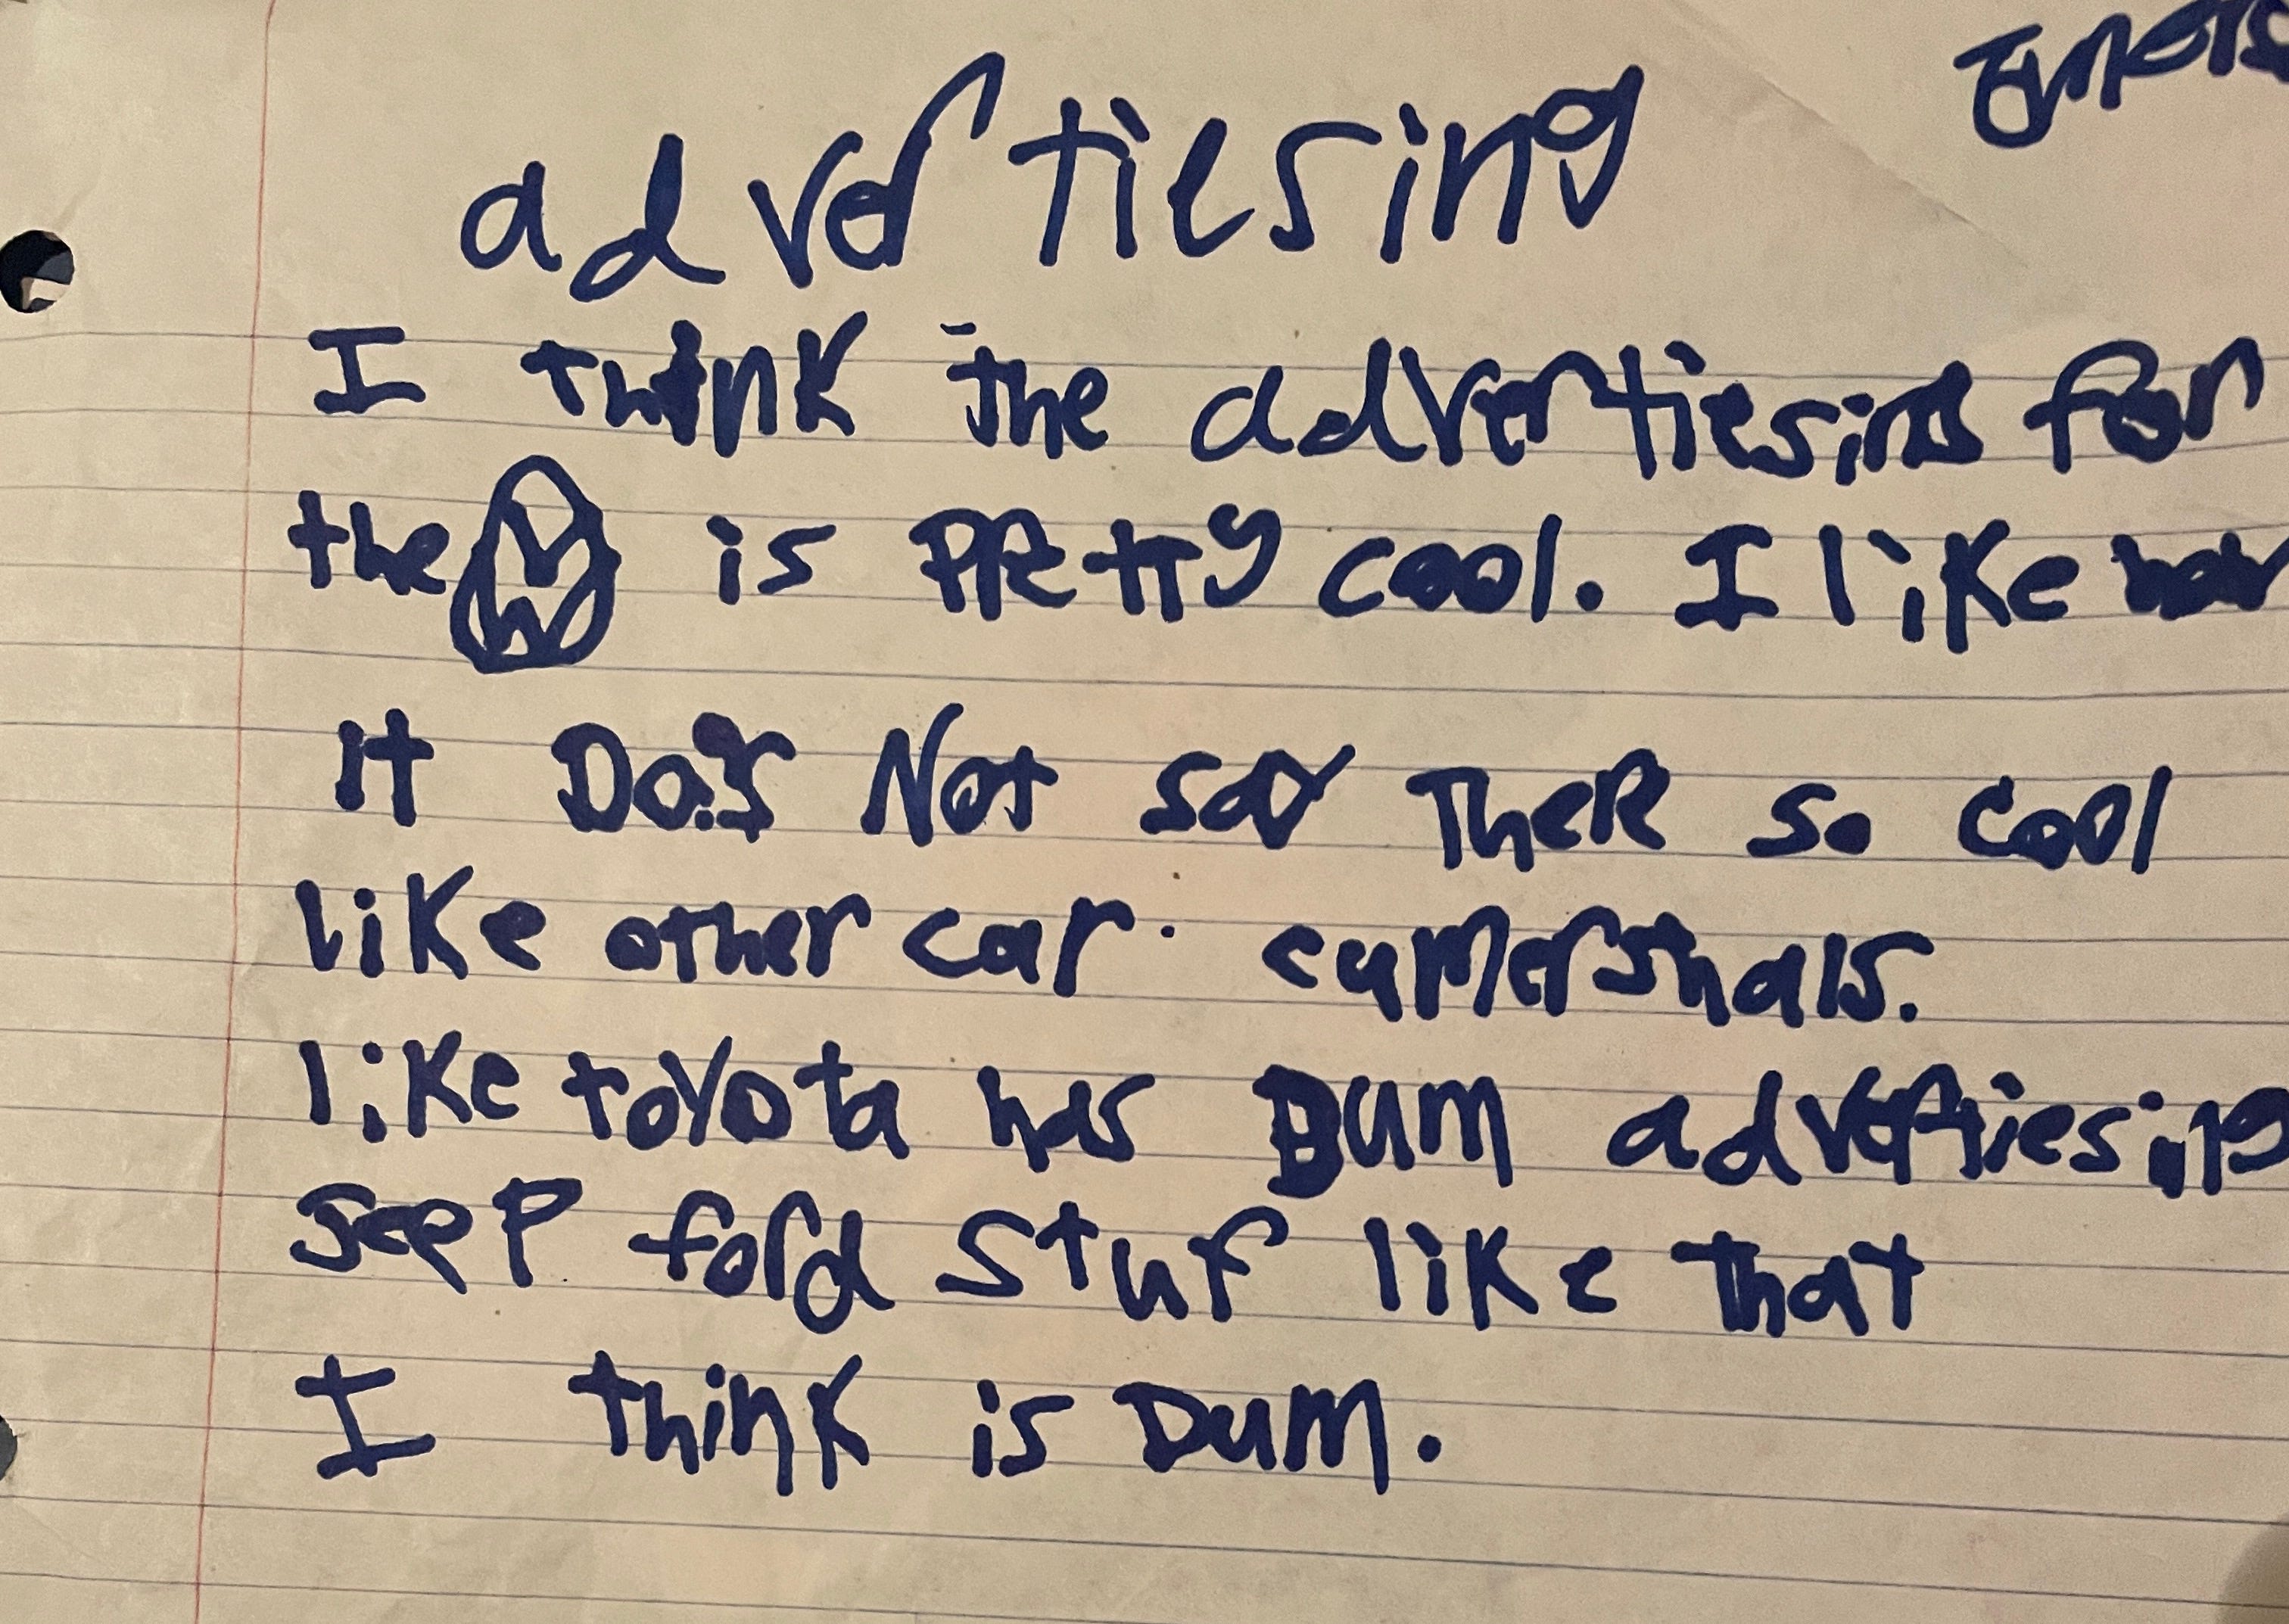 adverties ing
I think the advertiesing for
the VW is PRETTY cool. I like how
it Does Not say TheRe so cool
like other car cumershals.
like toyota has DUM advertiesing
Jeep ford stuf like that
I think is DUM.